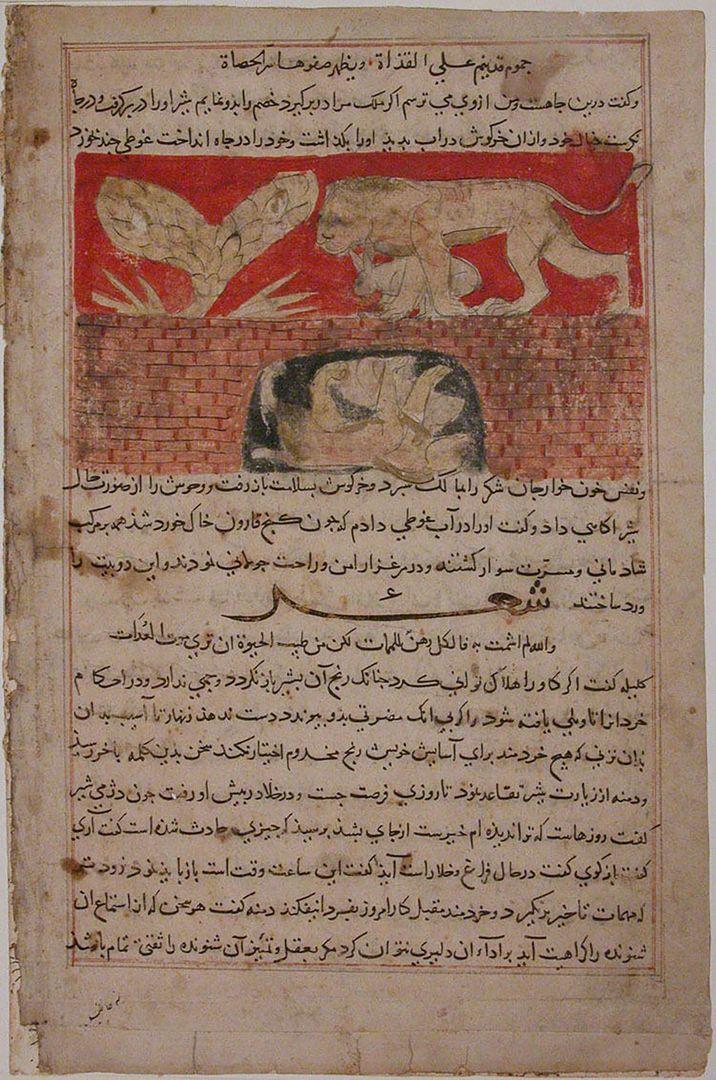 جموم قدینم علی القذاة ویظهر صفوها سر الحصاة
و کفت درین جاهست و من ازوی می ترسم اکر ملک مرا در بر کیرد خصم را بدو نمایم شیر اورا در بر کرفت و در جاه
نکرست خیال خود و ازان خرکوش در اب بدید اورا بکذاشت و خود را در جاه انداخت غوطی جند بخورد
و نفس خون خوار و جان را بمالک سپرد و خرکوش بسلامت باز رفت و وحوش را از صورت حال
شیر اکاهی داد و کفت اورا در آب غوطی دادم که جون کنج قارون خاک خورد شد همه بر مرکب
شادمانی و مسرت سوار کشتند و در مرغزار امن و راحت جولانی نمودند و این دو بیت را
ورد ساختند شعر
والله لم اشمت به فالکل رهن للممات لکن من طیب الحیوة ان تری موت العداة
کلیله کفت اکر کاو را هلاک توانی کرد جنانک رنج آن بشیر باز نکردد وجهی دارد و در احکام
خرد انرا تاویلی یافته شود و اکر بی انک مضرتی بدو پیوندد دست ندهد زنهار تا آسیب بدان
نزنی که هیج خردمند برای آسایش خویش رنج مخدوم اختیار نکند سخن بدین کلمه باخر رسید
و دمنه از زیارت شیر تقاعد نمود تا روزی فرصت جست و در خلا پیش او رفت جون دژمی شیر
کفت روزهاست که ترا ندیده ام خیرست از جای بشد پرسید که جیزی حادث شده است کفت آری
کفت باز کوی کفت در حال فراغ و خلا راست آید کفت این ساعت وقت است باز باید نمود زود
که مهمات تاخیر برنکیرد و خردمند مقبل کار امروز بفردا نیفکند دمنه کفت هر سخن که از استماع ان
شنونده را کراهیت آید بر اداء ان دلیری نتوان کرد مکر بعقل و تمییز آن شنونده را ثقتی تمام باشد